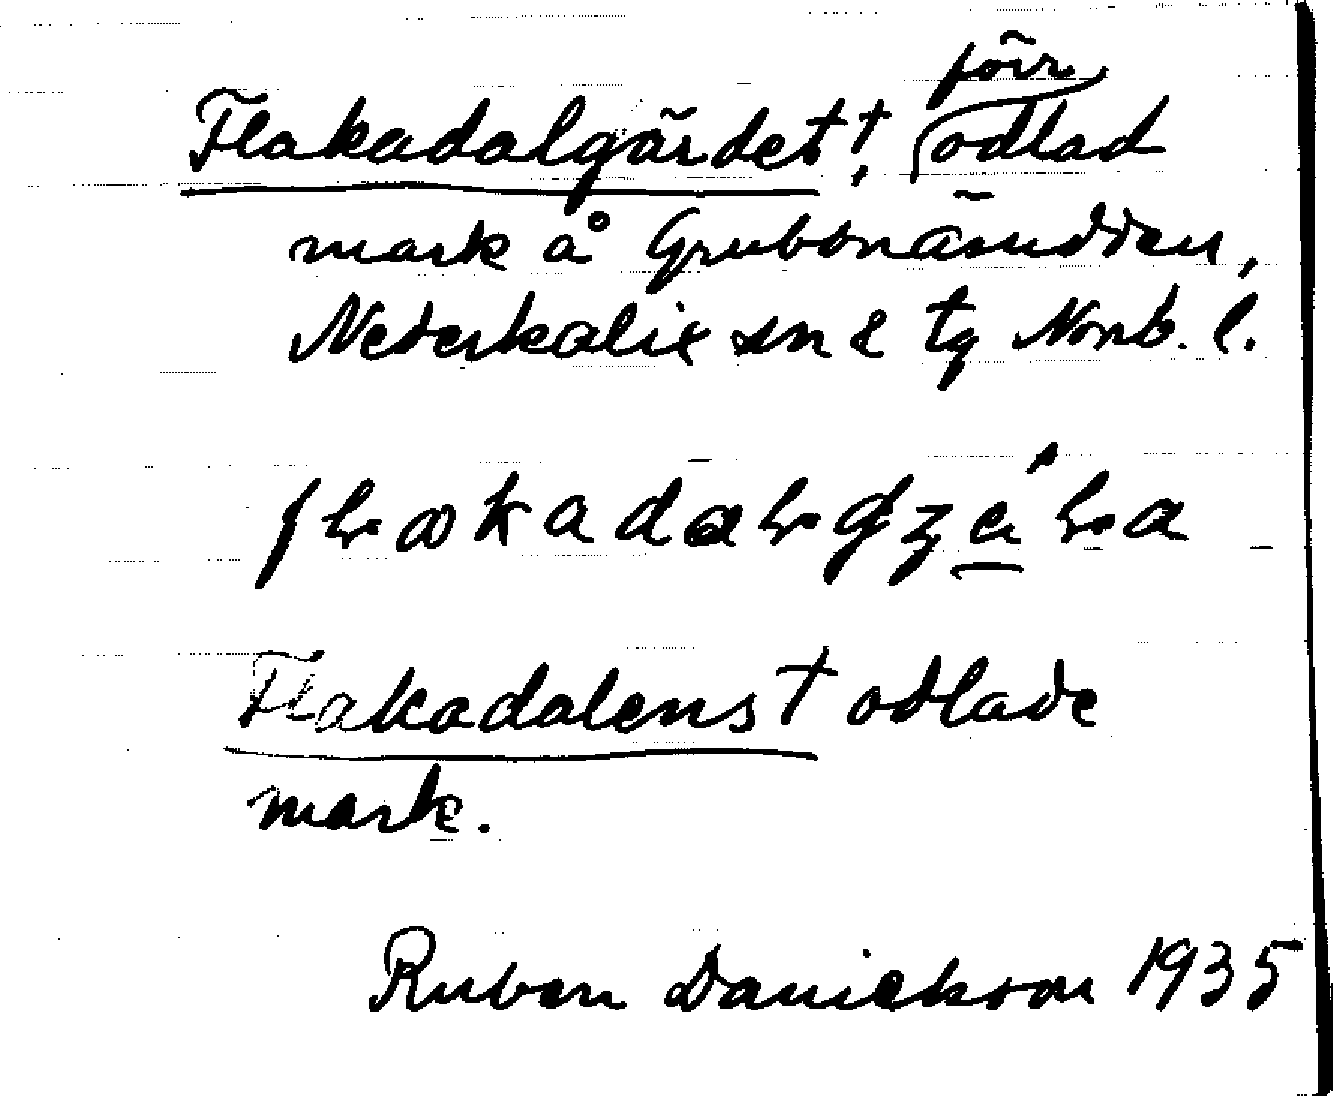 Flakadalgärdet †, förr odlad
mark å Grubbnäsudden,
Nederkalix sn & tg Nonb. l.
Flakadalens † odlade
mark.
Ruben Danielsson 1935